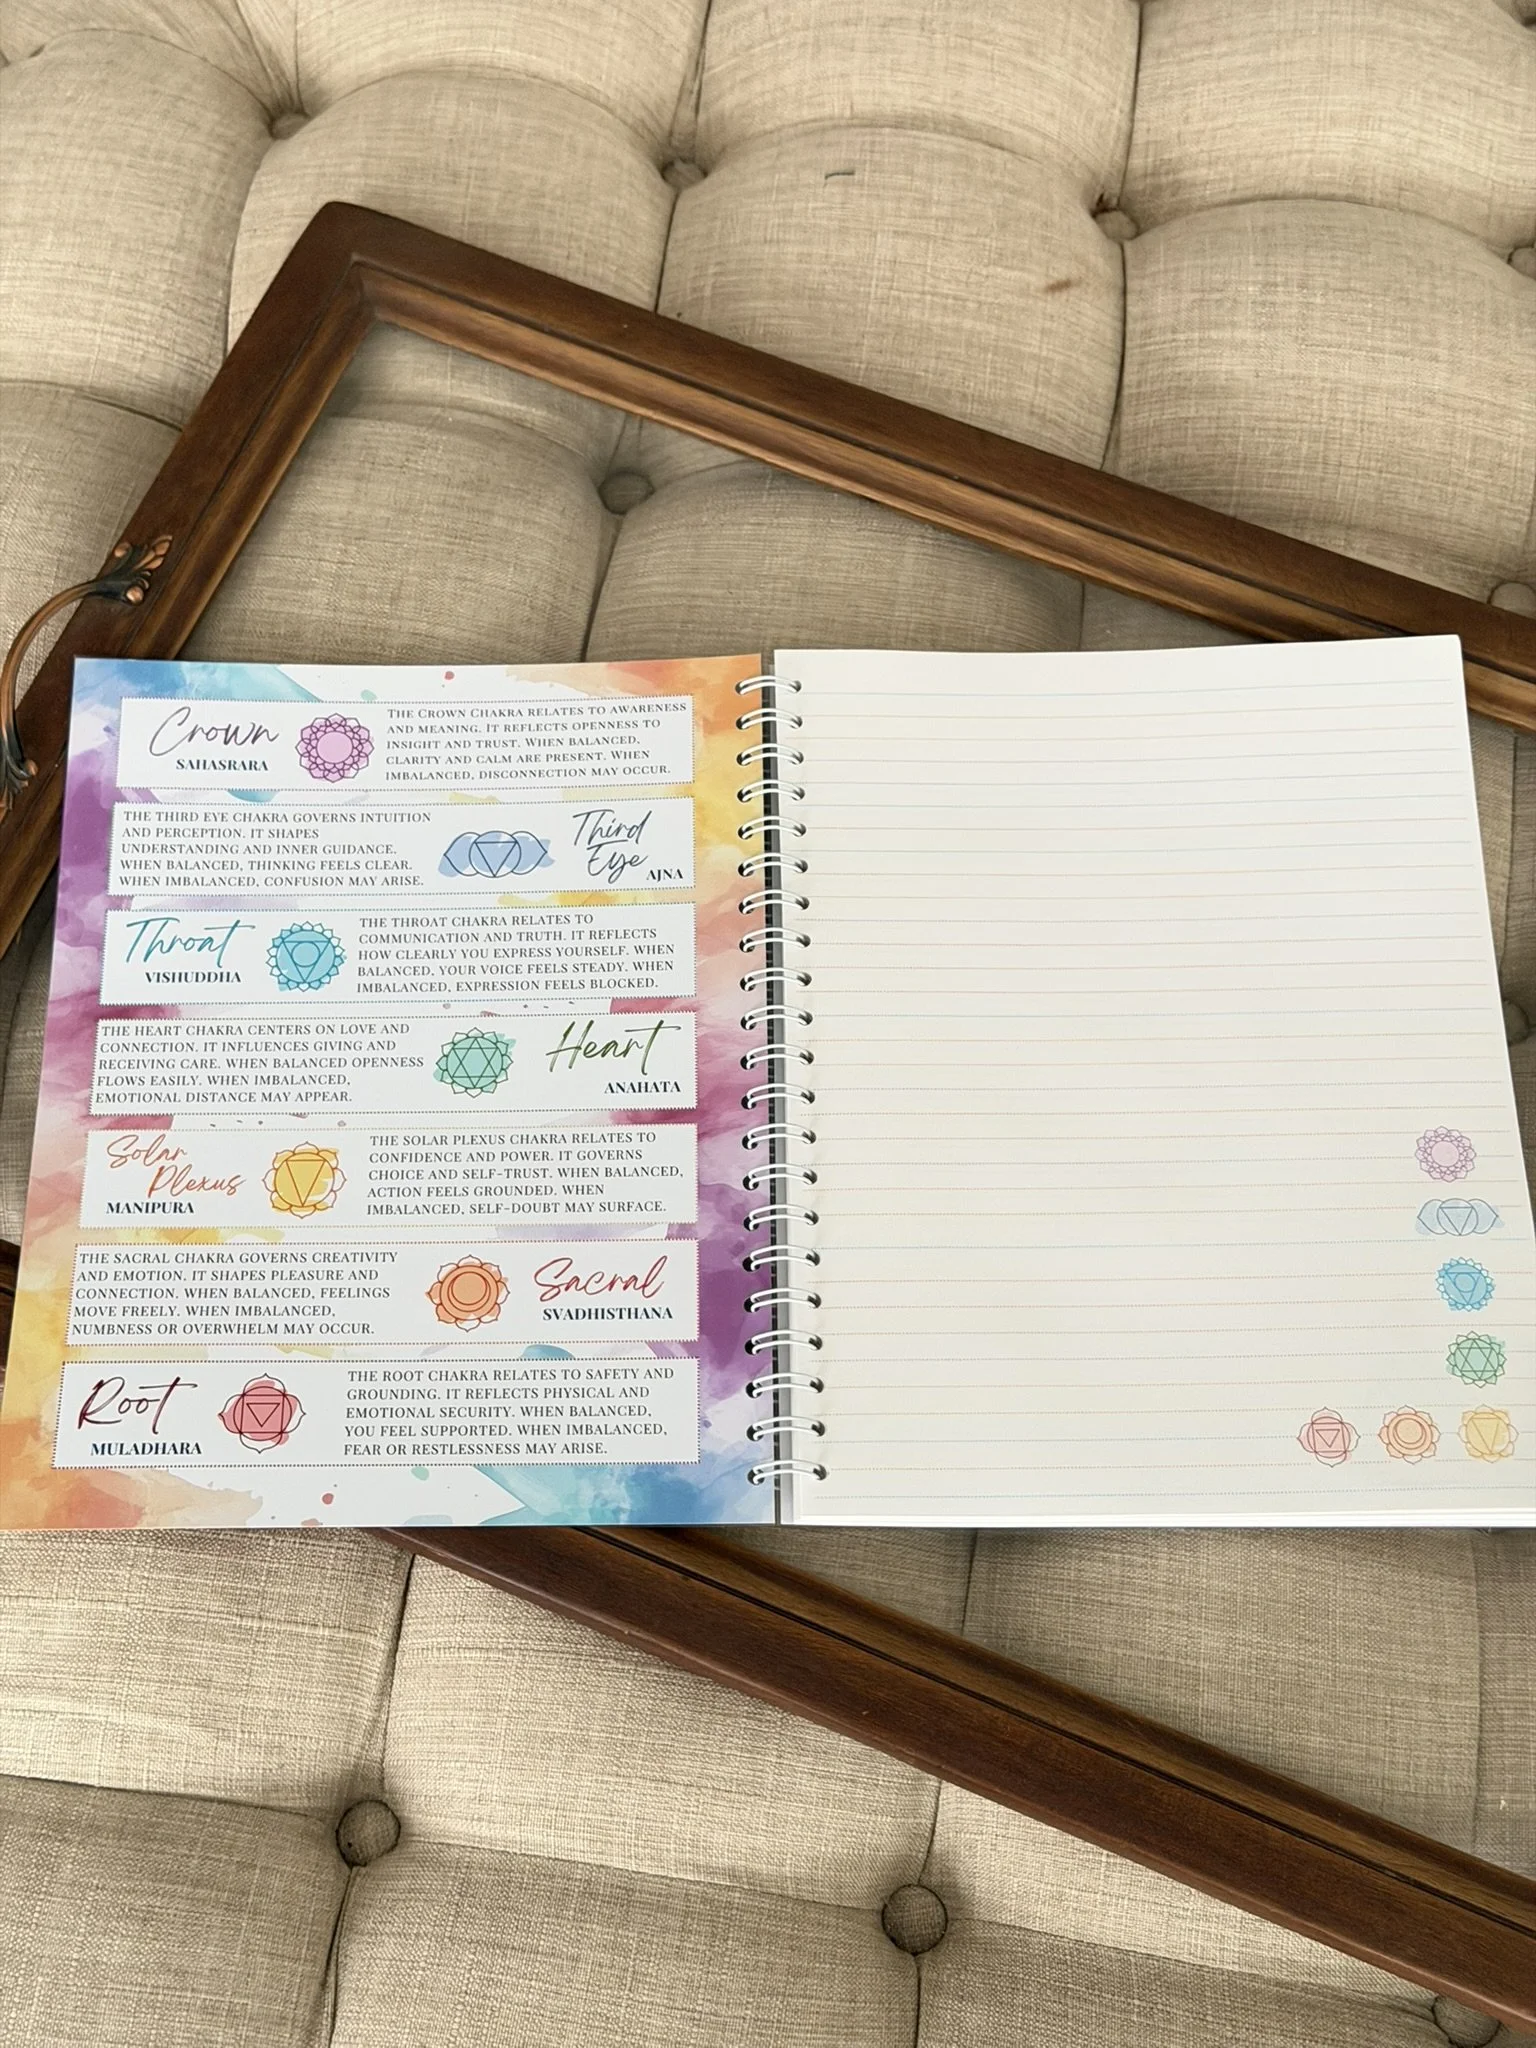 Crown
SAHASRARA
THE CROWN CHAKRA RELATES TO AWARENESS
AND MEANING. IT REFLECTS OPENNESS TO
INSIGHT AND TRUST. WHEN BALANCED,
CLARITY AND CALM ARE PRESENT. WHEN
IMBALANCED, DISCONNECTION MAY OCCUR.
THE THIRD EYE CHAKRA GOVERNS INTUITION
AND PERCEPTION. IT SHAPES
UNDERSTANDING AND INNER GUIDANCE.
WHEN BALANCED, THINKING FEELS CLEAR.
WHEN IMBALANCED, CONFUSION MAY ARISE.
Third
Eye
AJNA
Throat
VISHUDDHA
THE THROAT CHAKRA RELATES TO
COMMUNICATION AND TRUTH. IT REFLECTS
HOW CLEARLY YOU EXPRESS YOURSELF. WHEN
BALANCED, YOUR VOICE FEELS STEADY. WHEN
IMBALANCED, EXPRESSION FEELS BLOCKED.
THE HEART CHAKRA CENTERS ON LOVE AND
CONNECTION. IT INFLUENCES GIVING AND
RECEIVING CARE. WHEN BALANCED OPENNESS
FLOWS EASILY. WHEN IMBALANCED,
EMOTIONAL DISTANCE MAY APPEAR.
Heart
ANAHATA
Solar
Plexus
MANIPURA
THE SOLAR PLEXUS CHAKRA RELATES TO
CONFIDENCE AND POWER. IT GOVERNS
CHOICE AND SELF-TRUST, WHEN BALANCED,
ACTION FEELS GROUNDED. WHEN
IMBALANCED, SELF-DOUBT MAY SURFACE.
THE SACRAL CHAKRA GOVERNS CREATIVITY
AND EMOTION. IT SHAPES PLEASURE AND
CONNECTION. WHEN BALANCED, FEELINGS
MOVE FREELY. WHEN IMBALANCED,
NUMBNESS OR OVERWHELM MAY OCCUR.
Sacral
SVADHISTHANA
Root
MULADHARA
THE ROOT CHAKRA RELATES TO SAFETY AND
GROUNDING. IT REFLECTS PHYSICAL AND
EMOTIONAL SECURITY. WHEN BALANCED,
YOU FEEL SUPPORTED. WHEN IMBALANCED,
FEAR OR RESTLESSNESS MAY ARISE.